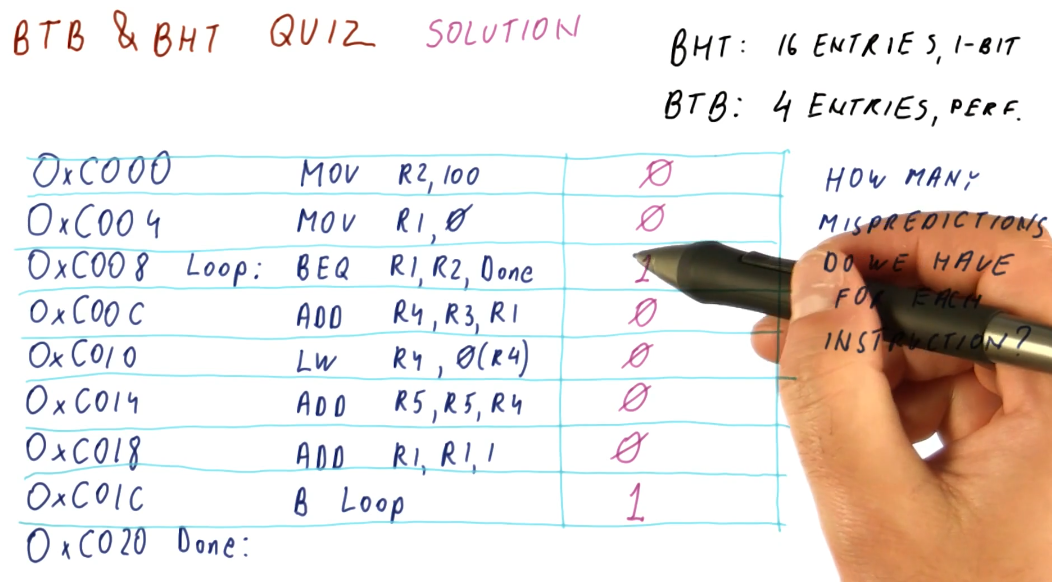 BTB & BHT QUIZ SOLUTION
BHT: 16 ENTRIES, 1-BIT
BTB: 4 ENTRIES, PERF.
0xC000 MOV R2, 100 0
0xC004 MOV R1, 0 0
0xC008 Loop: BEQ R1, R2, Done 1
0xC00C ADD R4, R3, R1 0
0xC010 LW R4, 0(R4) 0
0xC014 ADD R5, R5, R4 0
0xC018 ADD R1, R1, 1 0
0xC01C B Loop 1
0xC020 Done:
HOW MANY
MISPREDICTIONS
DO WE HAVE
FOR EACH
INSTRUCTION?